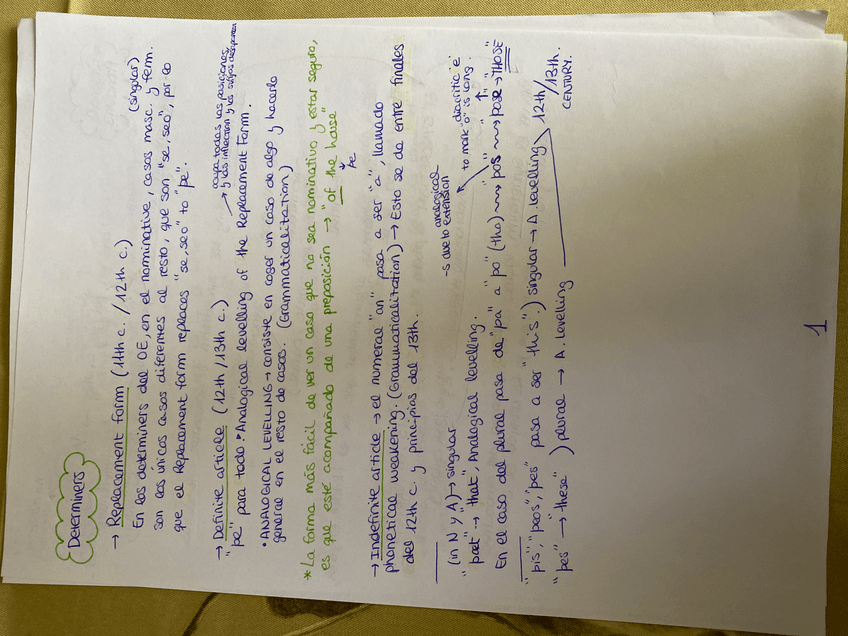 Determiners
→ Replacement form (11th c. / 12th c.)
(singular)
En los determiners del OE, en el nominative, casos masc. y fem.
son los únicos casos diferentes al resto, que son "se, seo", por lo
que el Replacement form replaces "se, seo" to "þe".
→ Definite article (12th / 13th c.)
"þe" para todo • Analogical levelling of the Replacement Form.
→ ocupa todas las posiciones
y las inflection y los sufijos desaparecen
• ANALOGICAL LEVELLING → consiste en coger un caso de algo y hacerlo
general en el resto de casos. (Grammaticalitation)
* La forma más fácil de ver un caso que no sea nominativo y estar seguro,
es que esté acompañado de una preposición → "of the house"
↓
þe
→ Indefinite article → el numeral "an" pasa a ser "a", llamado
phonetical weakening. (Grammaticalitation) → Esto se da entre finales
del 12th c. y principios del 13th.
(in N y A) → singular
"þæt" → "that", Analogical levelling.
analogical
-s due to extension
diacritic e
to mark "o" is long.
En el caso del plural pasa de "þa" a "þo" (tho) → "þos" → "þose" → "THOSE"
"þis", "þeos", "þes" pasa a ser "this".) singular → A. levelling
"þes" → "these" ) plural → A. levelling
12th / 13th.
CENTURY.
1